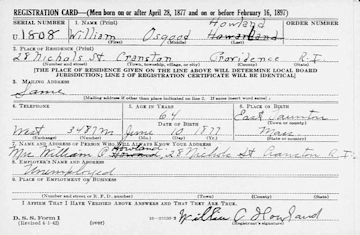 REGISTRATION CARD—(Men born on or after April 28, 1877 and on or before February 16, 1897)
SERIAL NUMBER 1. NAME (Print) Howland ORDER NUMBER
U1808 William Osgood Howland
(First) (Middle) (Last)
2. PLACE OF RESIDENCE (Print)
28 Nichols St. Cranston Providence R.I.
(Number and street) (Town, township, village, or city) (County) (State)
[THE PLACE OF RESIDENCE GIVEN ON THE LINE ABOVE WILL DETERMINE LOCAL BOARD
JURISDICTION; LINE 2 OF REGISTRATION CERTIFICATE WILL BE IDENTICAL]
3. MAILING ADDRESS
Same
(Mailing address if other than place indicated on line 2. If same insert word same)
4. TELEPHONE 5. AGE IN YEARS 6. PLACE OF BIRTH
64 East Taunton
DATE OF BIRTH (Town or county)
West 3487M June 10 1877 Mass
(Exchange) (Number) (Mo.) (Day) (Yr.) (State or country)
7. NAME AND ADDRESS OF PERSON WHO WILL ALWAYS KNOW YOUR ADDRESS
Howland
Mrs. William O. Howard, 28 Nichols St Cranston R.I.
8. EMPLOYER'S NAME AND ADDRESS
Unemployed
9. PLACE OF EMPLOYMENT OR BUSINESS
(Number and street or R. F. D. number) (Town) (County) (State)
I AFFIRM THAT I HAVE VERIFIED ABOVE ANSWERS AND THAT THEY ARE TRUE.
D. S. S. Form 1 William O Howland
(Revised 4-1-42) (over) (Registrant's signature)